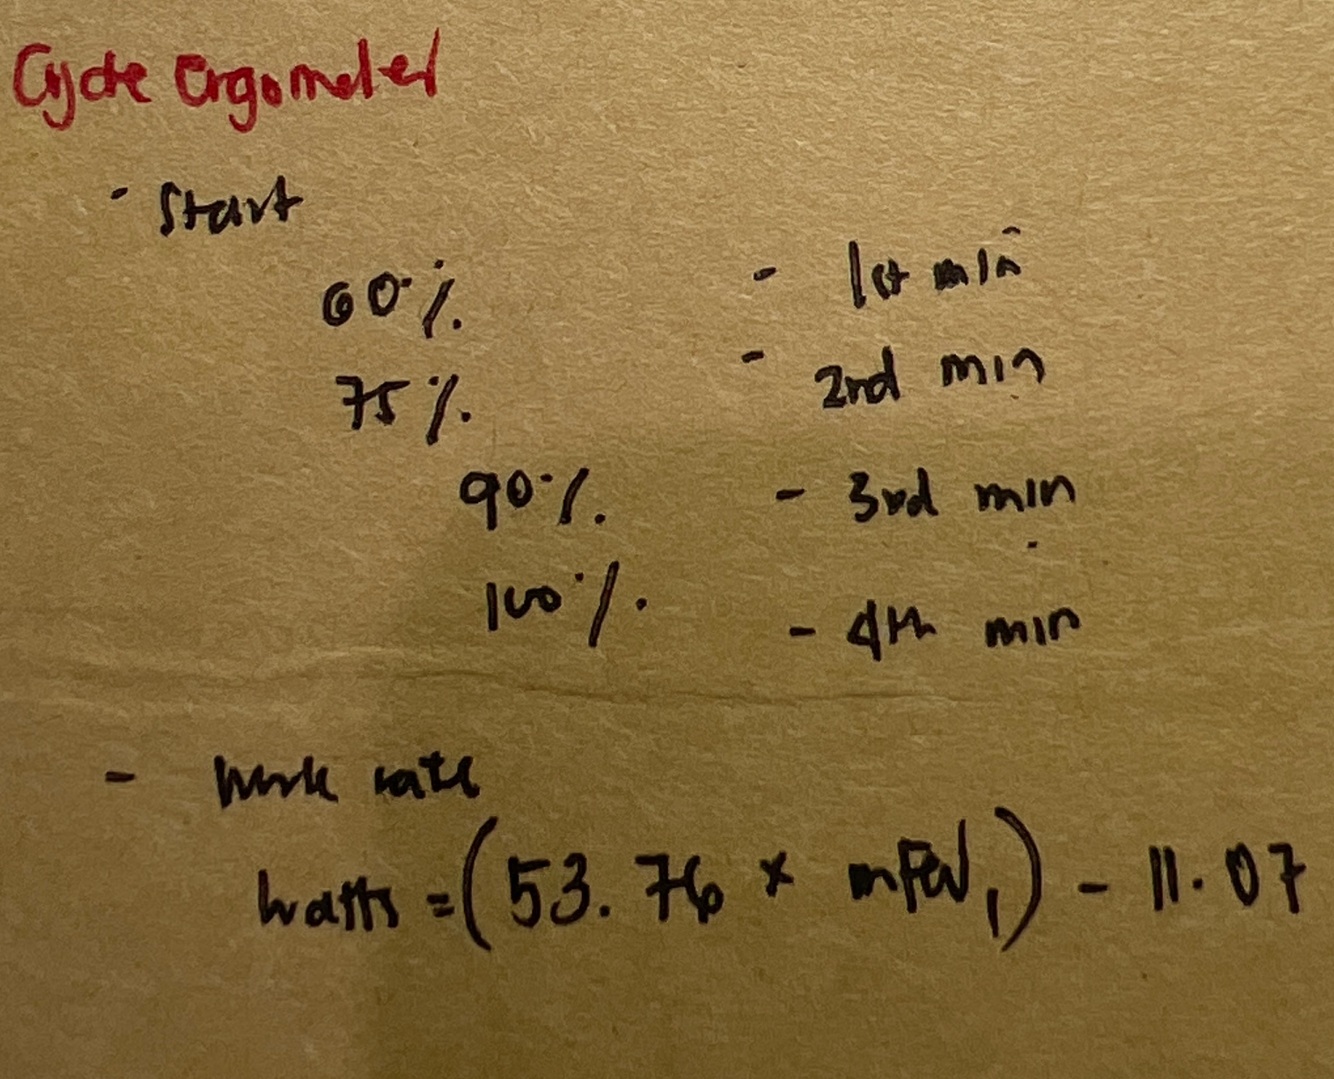 Cycle Ergometer
- Start
60% - 1st min
75% - 2nd min
90% - 3rd min
100% - 4th min
- Work rate
Watts = (53.76 x mFEV1) - 11.07